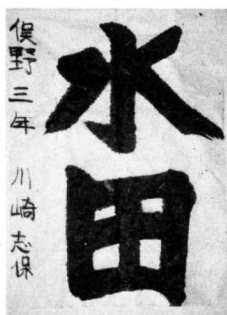 水田
俣野三年 川崎志保